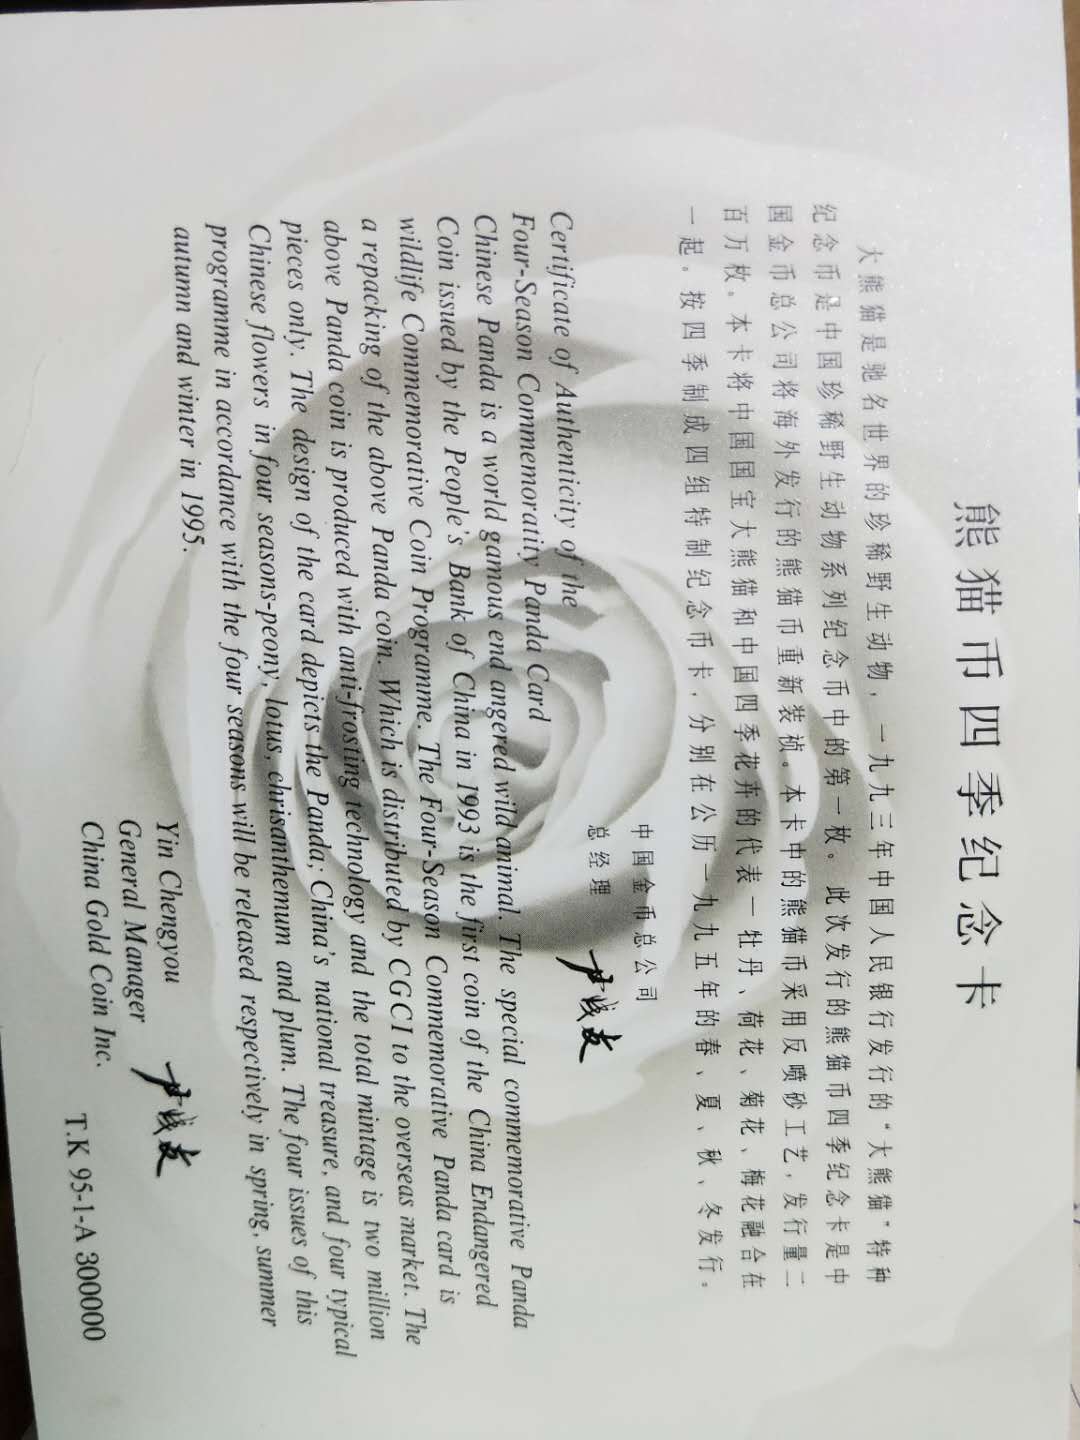 熊猫币四季纪念卡
大熊猫是驰名世界的珍稀野生动物，一九九三年中国人民银行发行的“大熊猫”特种
纪念币是中国珍稀野生动物系列纪念币中的第一枚。此次发行的熊猫币四季纪念卡是中
国金币总公司将海外发行的熊猫币重新装祯。本卡中的熊猫币采用反喷砂工艺，发行量二
百万枚。本卡将中国国宝大熊猫和中国四季花卉的代表－牡丹、荷花、菊花、梅花融合在
一起。按四季制成四组特制纪念币卡，分别在公历一九九五年的春、夏、秋、冬发行。
中国金币总公司
总经理 尹成友
Certificate of Authenticity of the
Four-Season Commemoraity Panda Card
Chinese Panda is a world gamous end angered wild animal. The special commemorative Panda
Coin issued by the People's Bank of China in 1993 is the first coin of the China Endangered
wildlife Commemorative Coin Programme. The Four-Season Commemorative Panda card is
a repacking of the above Panda coin. Which is distributed by CGCI to the overseas market. The
above Panda coin is produced with anti-frosting technology and the total mintage is two million
pieces only. The design of the card depicts the Panda; China's national treasure, and four typical
Chinese flowers in four seasons-peony, lotus, chrisanthemum and plum. The four issues of this
programme in accordance with the four seasons will be released respectively in spring, summer
autumn and winter in 1995.
Yin Chengyou
General Manager 尹成友
China Gold Coin Inc.
T.K 95-1-A 300000